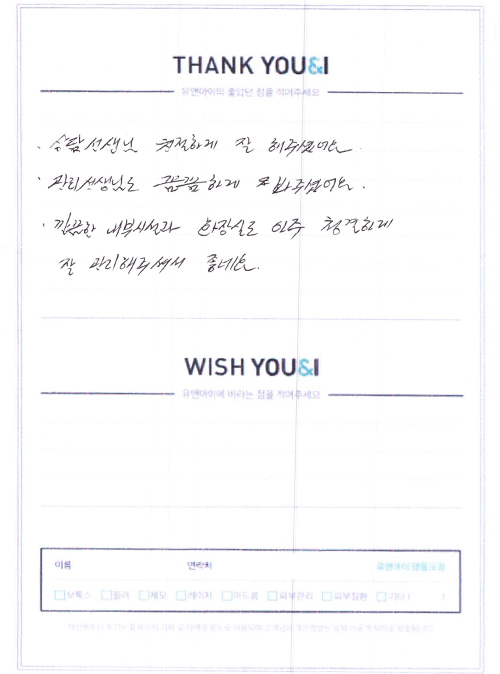 THANK YOU&I
유앤아이의 좋았던 점을 적어주세요
· 상담선생님 친절하게 잘 해주셨어요.
· 관리선생님도 꼼꼼하게 봐주셨어요.
· 깔끔한 내부시설과 화장실도 아주 청결하게
잘 관리해주셔서 좋네요.
WISH YOU&I
유앤아이에 바라는 점을 적어주세요
이름 연락처 유앤아이
보톡스 필러 제모 레이저 여드름 피부관리 피부질환 기타 ( )